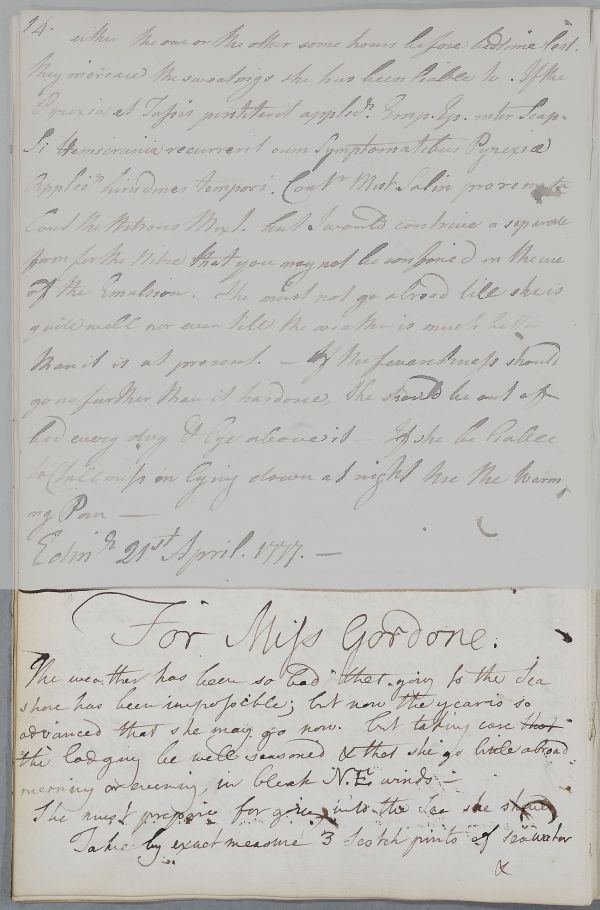 14.
either the one or the other some hours before bedtime lest
they increase the sweatings she has been liable to. If the
Pyrexia et Tussis perstiterit applicr. Emp. Ep. inter Scap-
Si Hemicrania recurrerit cum Symptomatibus Pyrexiæ
Applicr hirudines tempori. Contr Mist. Salin pro re nata
Cont the Nitrous Mixt. but I would contrive a separate
form for the Nitre that you may not be confined in the use
of the Emulsion. She must not go abroad till she is
quite well nor even till the weather is much better
than it is at present — If the feverishness should
go no further than it has done, she should be out of
bed every day & lye above it — If she be liable
to Chilliness in lying down at night use the Warm-
ing Pan —
Edinr 21st April. 1777. —
For Miss Gordone.
The weather has been so bad that going to the Sea
shore has been impossible; but now the year is so
advanced that she may go now. but taking care that
the lodging be well seasoned & that she go little abroad
morning or evening, in bleak N.E. winds —
She must prepare for going into the Sea she
Take by exact measure 3 Scotch pints of seawater
&